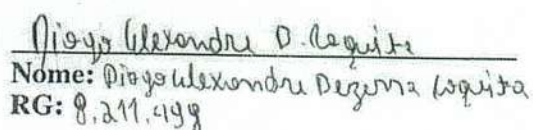 Diogo Alexandre D. Coquita
Nome: Diogo Alexandre Dezerra Coquita
RG: 8.211.499